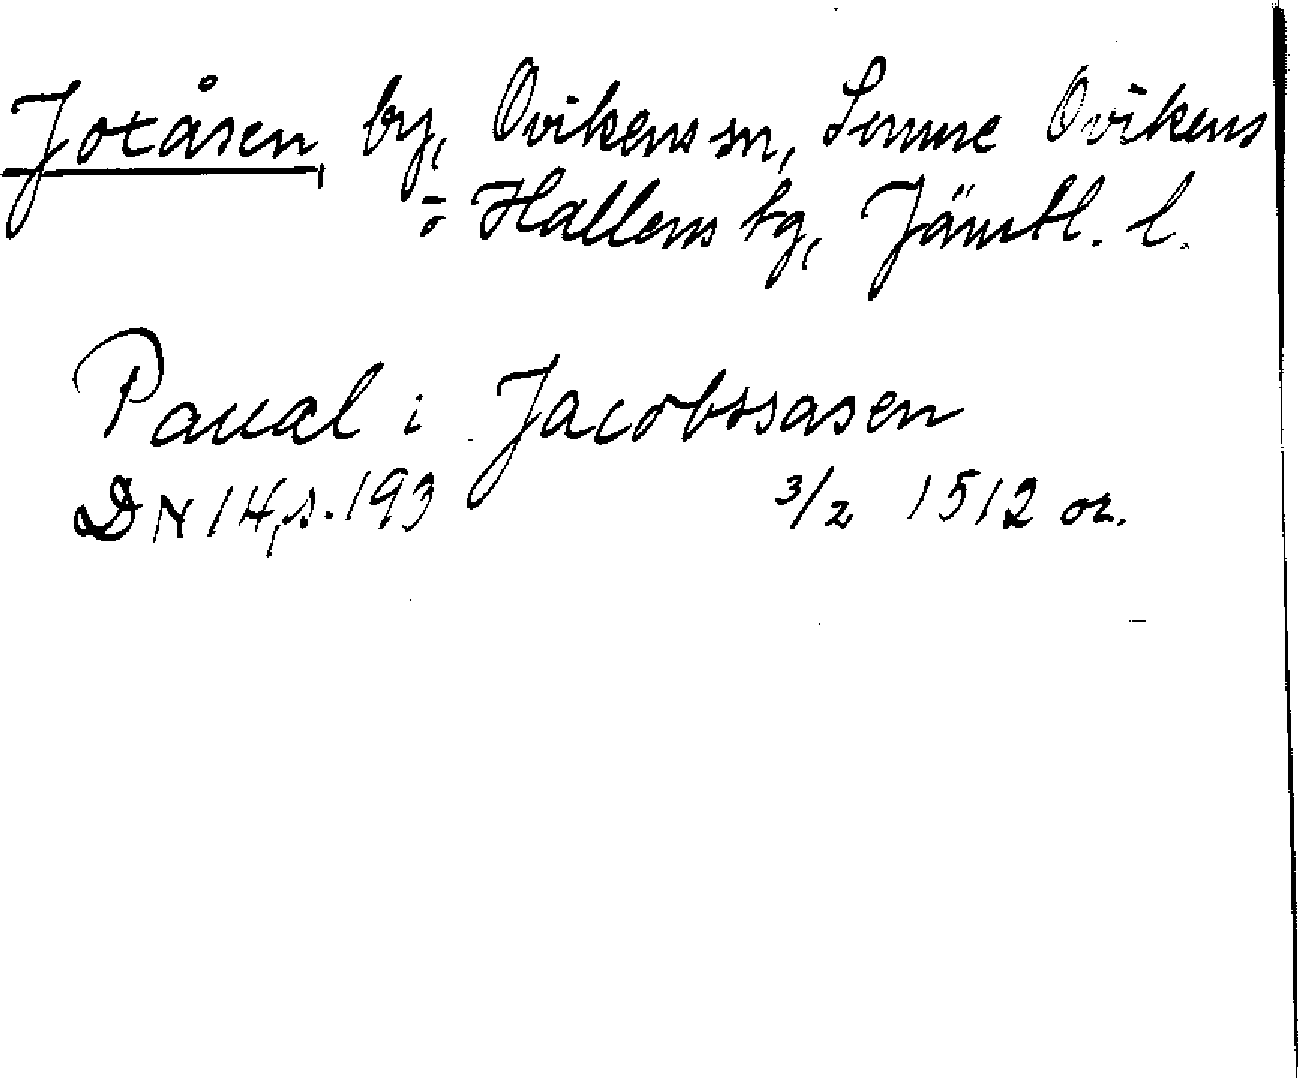 Joxåsen, by, Ovikens sn, Sunne Ovikens
o Hallens tg, Jämtl. l.
Paual i Jacobssasen
DN 14, s. 193 3/2 1512 or.